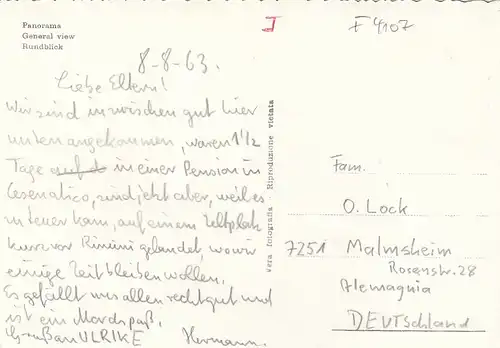 Panorama
General view
Rundblick
I
F 4107
8-8-63.
Liebe Eltern!
Wir sind inzwischen gut hier
unten angekommen, waren 1 1/2
Tage in einer Pension in
Cesenatico, sind jetzt aber, weil es
zu teuer kam, auf einem Zeltplatz
kurz vor Rimini gelandet, wo wir
einige Zeit bleiben wollen.
Es gefällt uns allen recht gut und
ist ein Mordspaß.
Gruß an ULRIKE Hermann.
Vera fotografia - Riproduzione vietata
Fam.
O. Lock
7251 Malmsheim
Rosenstr. 28
Alemagnia
DEUTSCHLAND